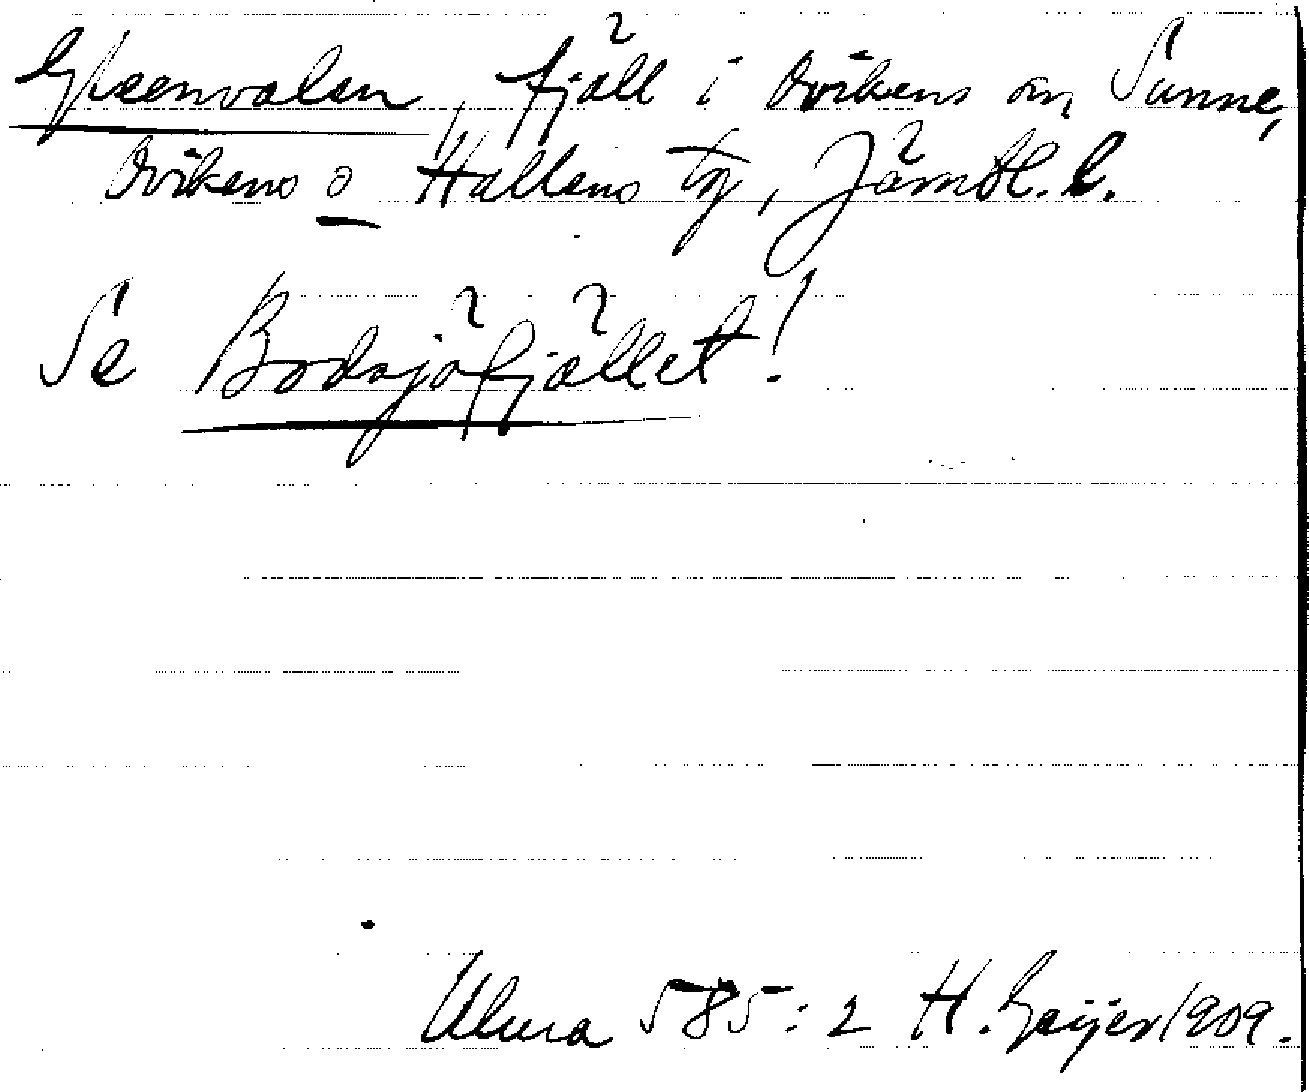 Glsenvalen, fjäll i Ovikens sn, Sunne,
Ovikens o Hallens tg, Jämtl. l.
Se Bodsjöfjället!
Uluma 585:2 H. Geijer 1909.